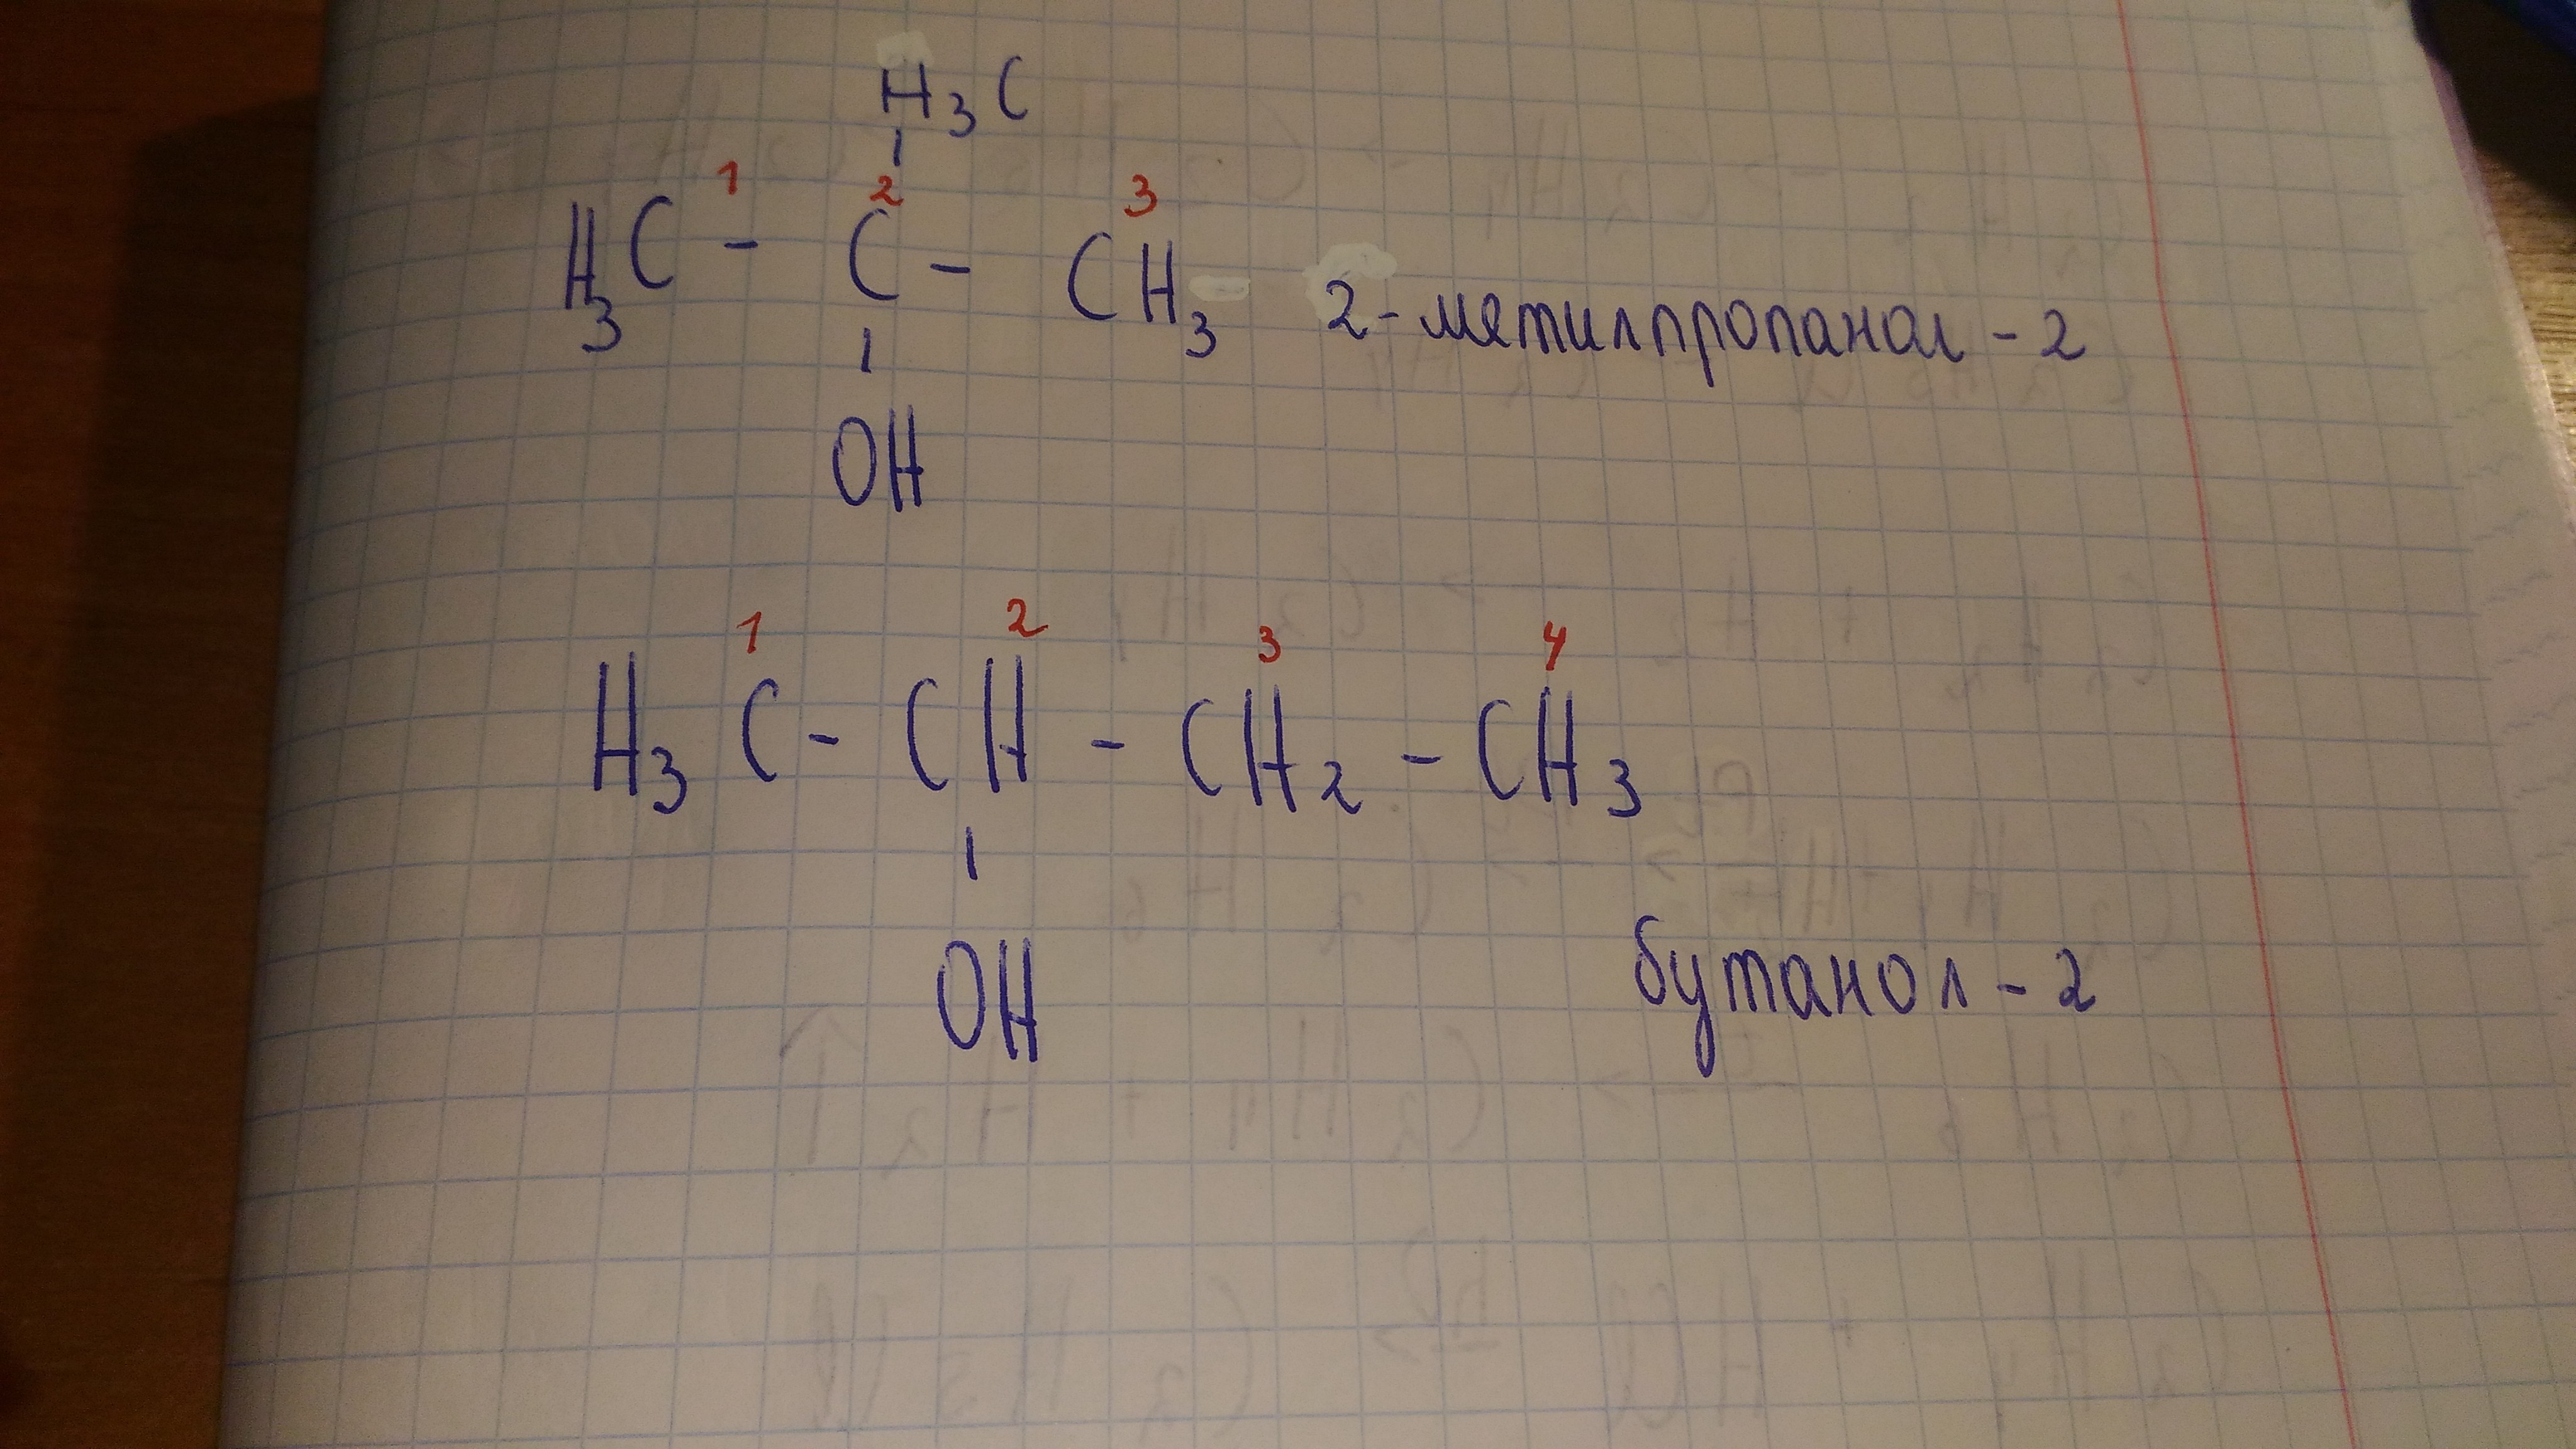 H3C
1 2 3
H3C - C - CH3 2-метилпропанол-2
OH
1 2 3 4
H3C - CH - CH2 - CH3
OH
бутанол-2